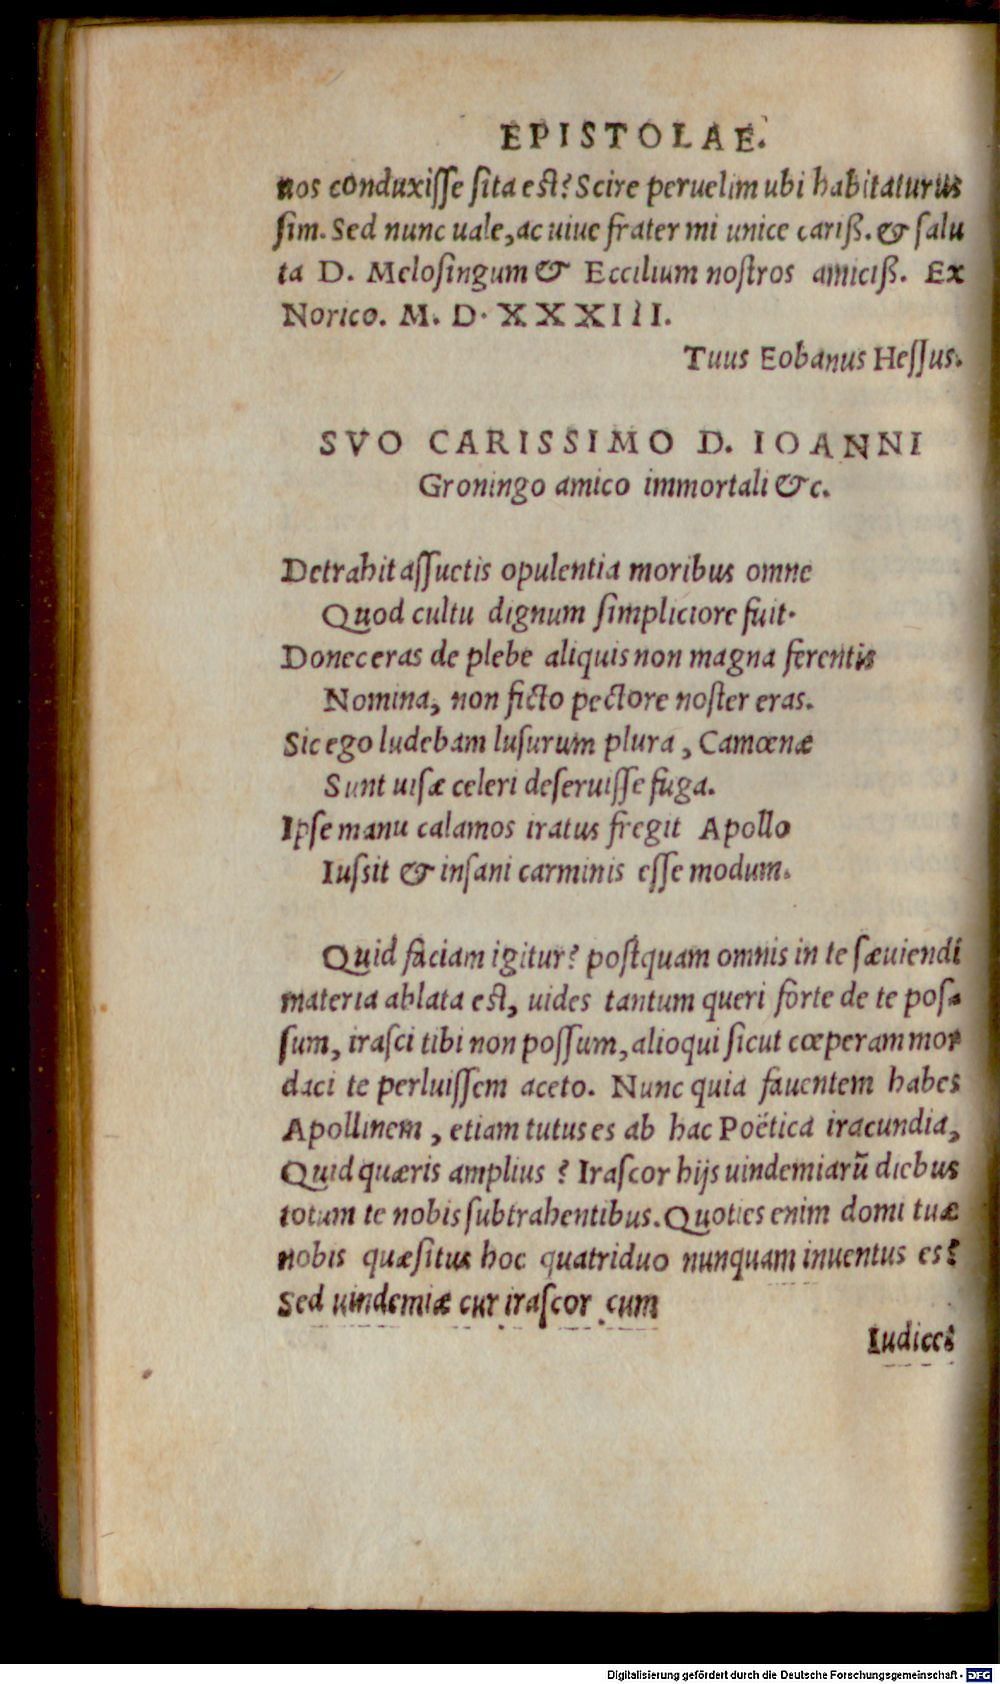 EPISTOLAE.
nos conduxisse sita est? Scire peruelim ubi habitaturus
sim. Sed nunc uale, ac uiue frater mi unice cariß. & salu
ta D. Melosingum & Eccilium nostros amiciß. Ex
Norico. M. D. XXXIII.
Tuus Eobanus Hessus.
SVO CARISSIMO D. IOANNI
Groningo amico immortali &c.
Detrahit assuetis opulentia moribus omne
Quod cultu dignum simpliciore fuit.
Donec eras de plebe aliquis non magna ferentis
Nomina, non ficto pectore noster eras.
Sic ego ludebam lusurum plura, Camœnæ
Sunt uisæ celeri deseruisse fuga.
Ipse manu calamos iratus fregit Apollo
Iussit & insani carminis esse modum.
Quid faciam igitur? postquam omnis in te sæuiendi
materia ablata est, uides tantum queri forte de te pos-
sum, irasci tibi non possum, alioqui sicut cœperam mor
daci te perluissem aceto. Nunc quia fauentem habes
Apollinem, etiam tutus es ab hac Poëtica iracundia,
Quid quæris amplius? Irascor hijs uindemiarũ diebus
totum te nobis subtrahentibus. Quoties enim domi tuæ
nobis quæsitus hoc quatriduo nunquam inuentus es?
Sed uindemiæ cur irascor cum
Iudices
Digitalisierung gefördert durch die Deutsche Forschungsgemeinschaft - DFG